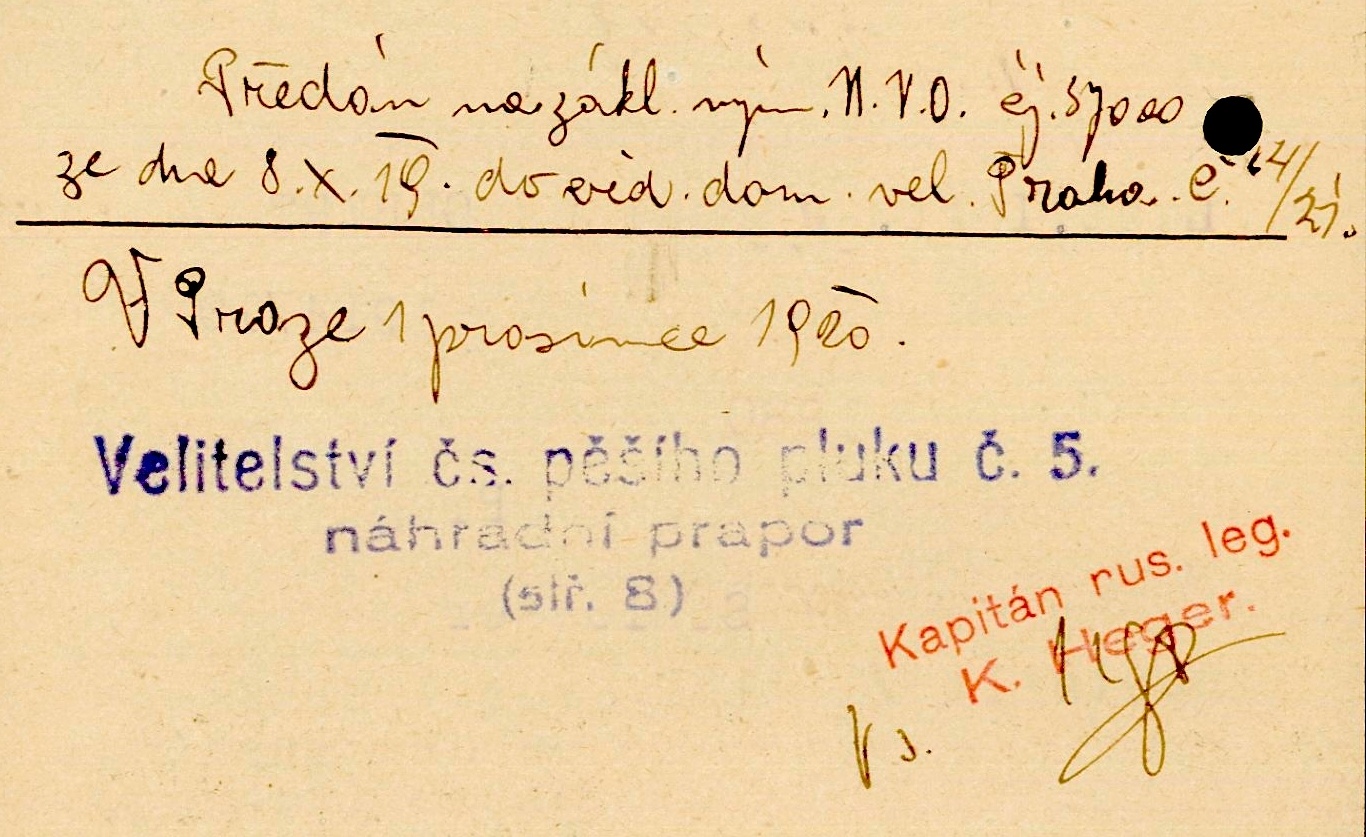 Předán na zákl. výn. M.V.O. čj. 57000
ze dne 8.X.19. do evid. dom. vel. Praha. č. 24/21.
V Praze 1 prosince 1920.
Velitelství čs. pěšího pluku č. 5.
náhradní prapor
(stř. 8)
Kapitán rus. leg.
K. Heger.